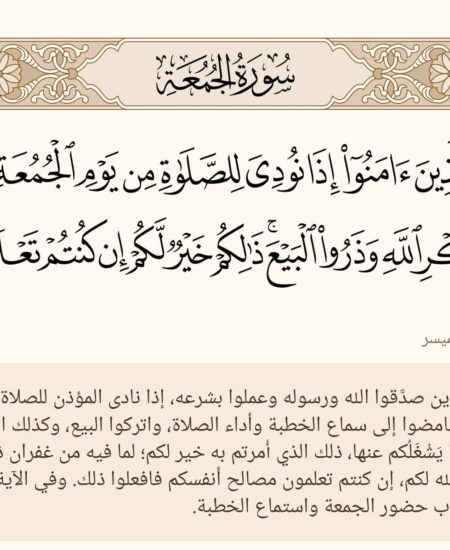 سُورَةُ الجُمُعَةِ
ءَامَنُوٓاْ إِذَا نُودِىَ لِلصَّلَوٰةِ مِن يَوْمِ ٱلْجُمُعَةِ
ٱللَّهِ وَذَرُواْ ٱلْبَيْعَ ۚ ذَٰلِكُمْ خَيْرٌ لَّكُمْ إِن كُنتُمْ
صدَّقوا الله ورسوله وعملوا بشرعه، إذا نادى المؤذن للصلاة
إلى سماع الخطبة وأداء الصلاة، واتركوا البيع، وكذلك
يَشْغَلُكم عنها، ذلك الذي أمرتم به خير لكم؛ لما فيه من غفران
لكم، إن كنتم تعلمون مصالح أنفسكم فافعلوا ذلك. وفي الآية
حضور الجمعة واستماع الخطبة.